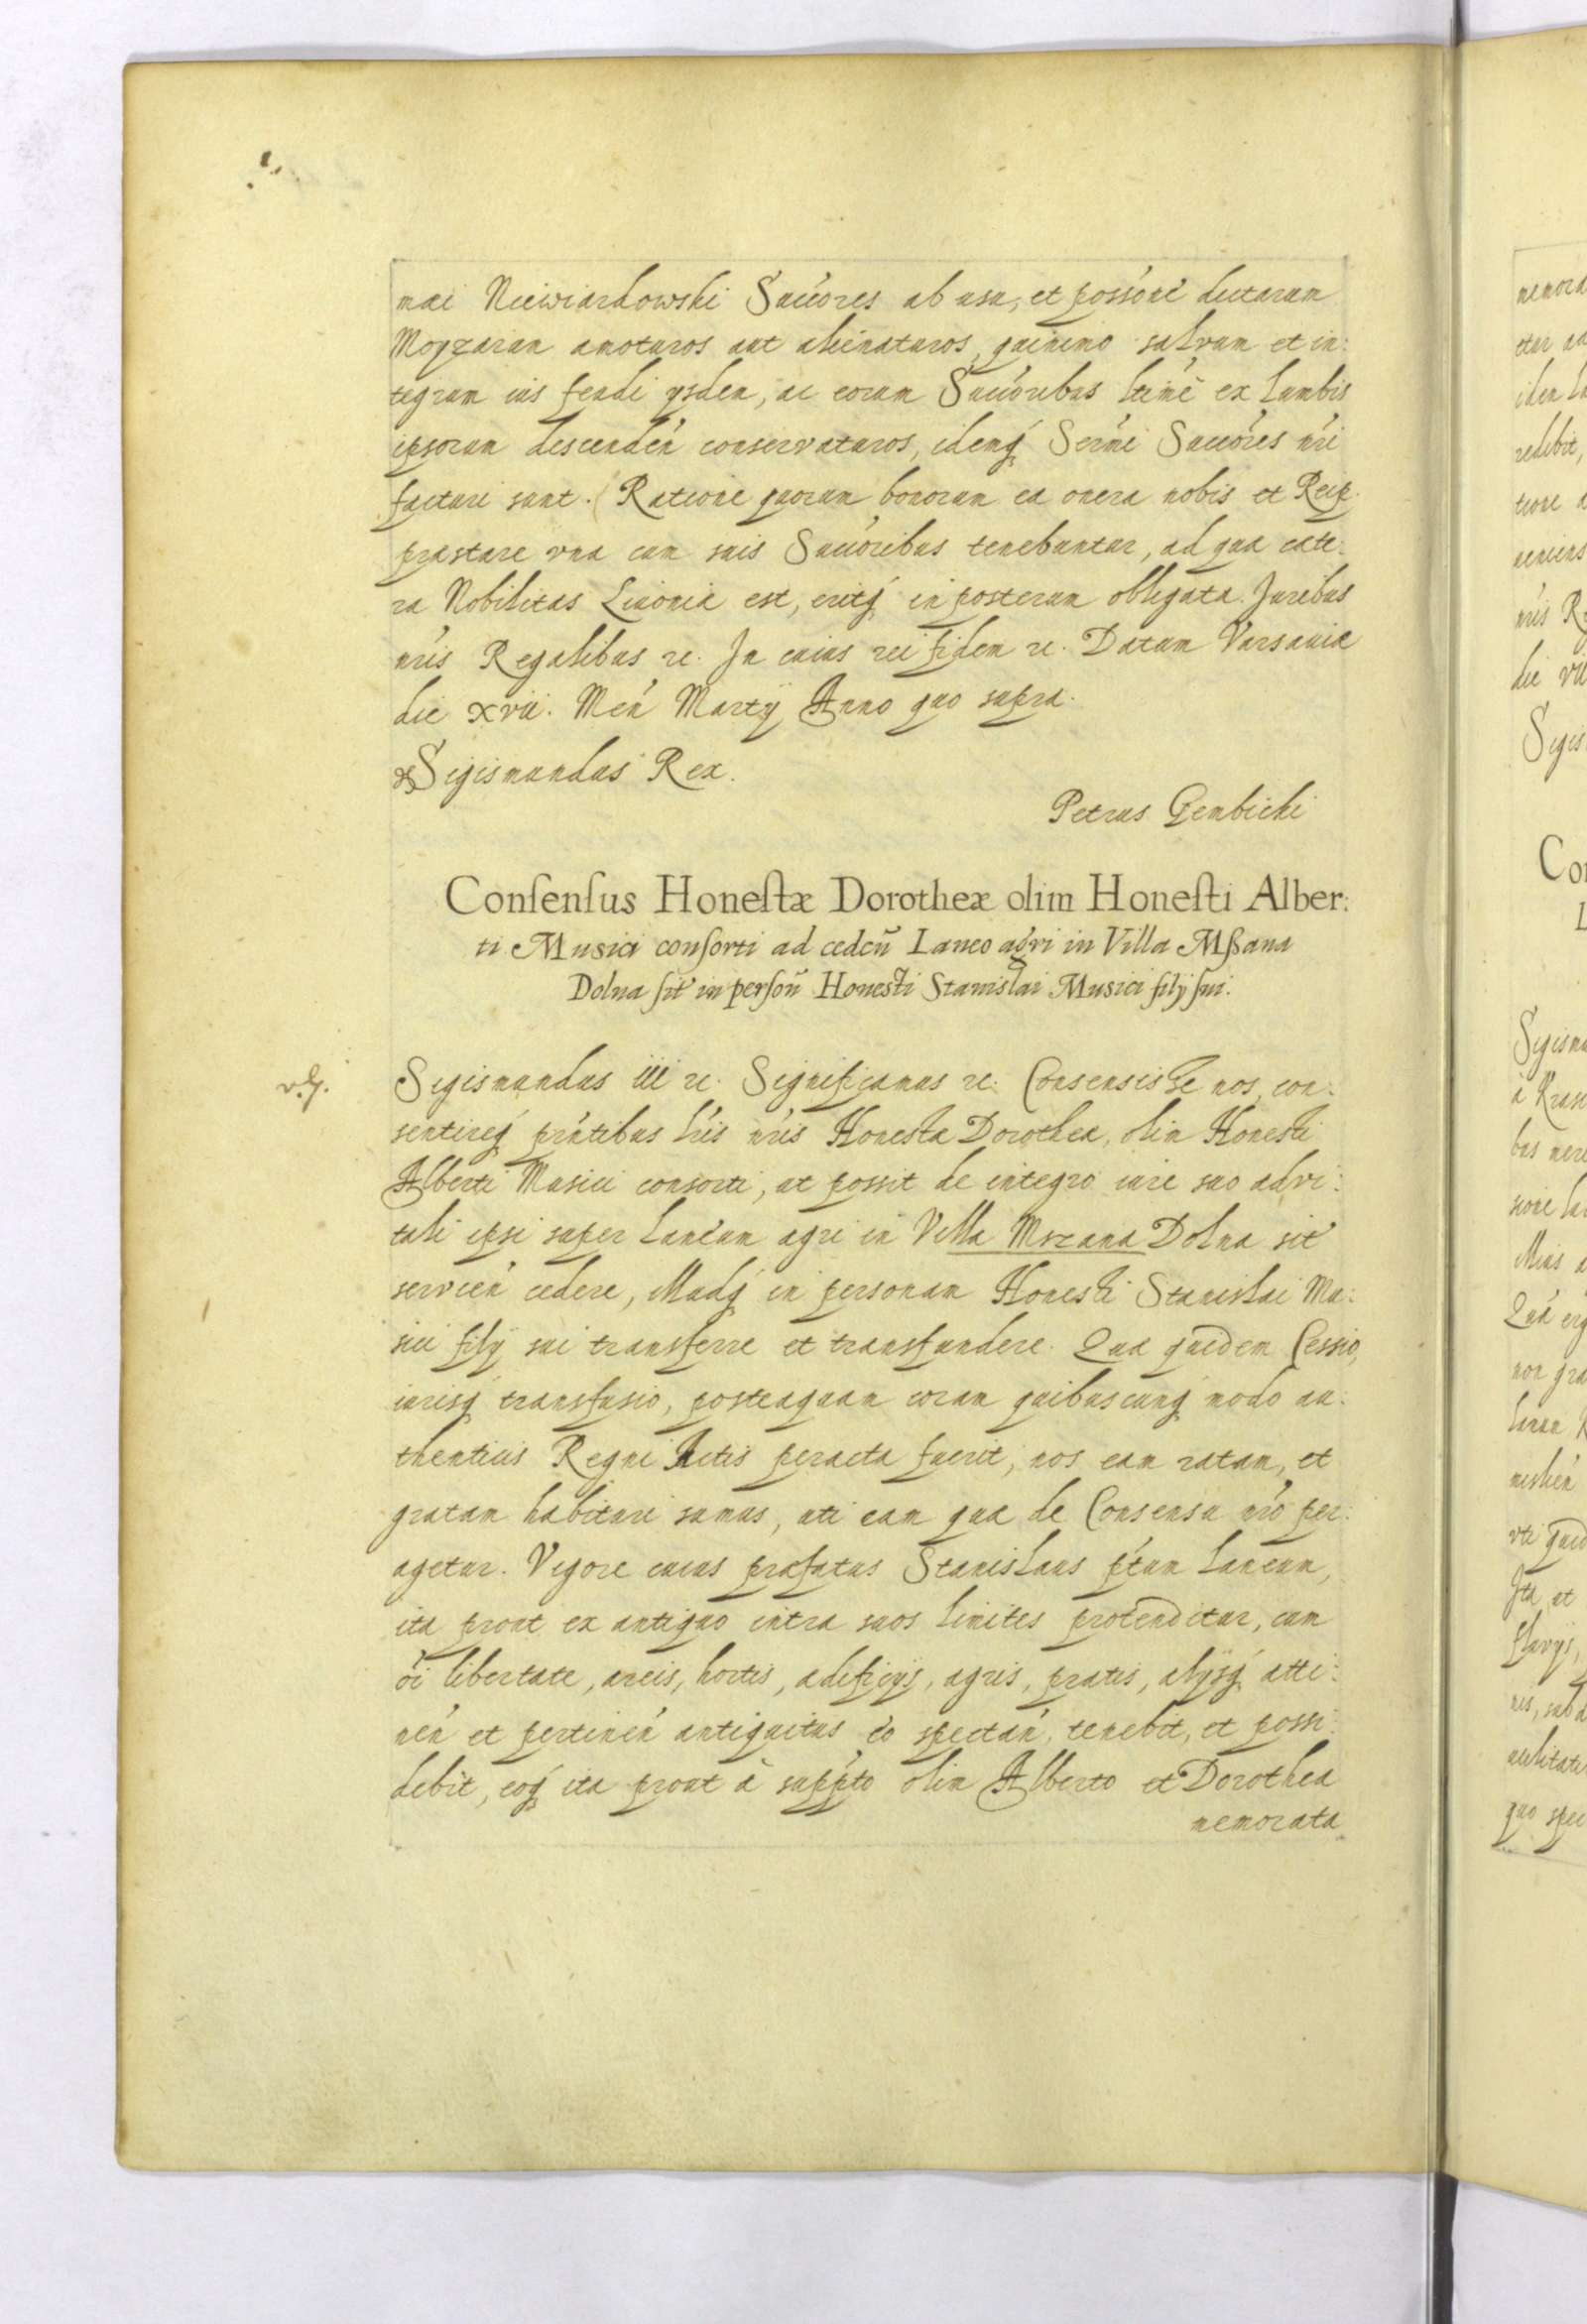 mai Niewiardowski Succ̃ores ab usu, et possõne dictarum
Moyzarum amoturos aut alienaturos, quinimo salvum et in:
tegrum ius feudi ijsdem, ac eorum Succ̃oribus ltime ex lumbis
ipsorum descendeñ conservaturos, idemq́ Serm̃i Succ̃ores nr̃i
facturi sunt. Ratione quorum bonorum ea onera nobis et Reip.
præstare vna cum suis Succ̃oribus tenebuntur, ad quæ cæte:
ra Nobilitas Liuoniæ est, eritq́ in posterum obligata. Juribus
nr̃is Regalibus rc. In cuius rei fidem rc. Datum Varsauiæ
die xvii. Men̄ Martij Anno quo supra.
Sigismundus Rex.
Petrus Gembicki
Conſenſus Honeſtæ Dorotheæ olim Honeſti Alber:
ti Musici conſorti ad cedeñ Laneo agri in Villa Mßana
Dolna ſit̃ in perſoñ Honesti Stanislai Musici filij ſui.
Sigismundus iii rc. Significamus rc. Consensisse nos, con:
sentireq́ pr̃ntibus lr̃is nr̃is Honestæ Dorotheæ, olim Honesti
Alberti Musici consorti, ut possit de integro iure suo advi:
tali ipsi super Laneum agri in Villa Mszana Dolna sit̃
servieñ cedere, illudq́ in personam Honesti Stanislai Mu:
sici filij sui transferre et transfundere. Quæ quidem Cessio,
iurisq́ transfusio, posteaquam coram quibuscunq́ modo au:
thenticis Regni Actis peracta fuerit, nos eam ratam, et
gratam habituri sumus, uti eam quæ de Consensu nr̃o per:
agetur. Vigore cuius præfatus Stanislaus p̃tum Laneum,
ita prout ex antiquo intra suos limites protenditur, cum
õi libertate, areis, hortis, ædificijs, agris, pratis, alijsq́ atti:
neñ et pertineñ antiquitus eo spectañ, tenebit, et possi:
debit, eoq́ ita prout à supp̃to olim Alberto et Dorothea
memorata